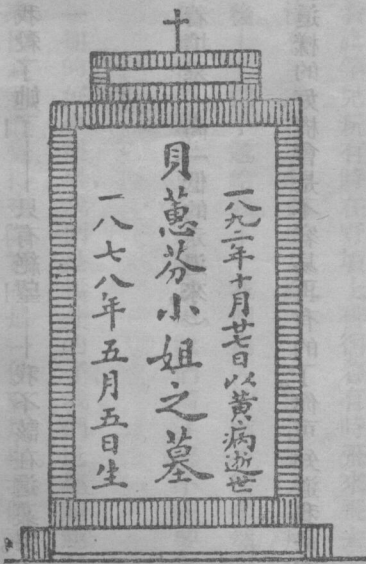 一八九二年十月廿七日以黃病逝世
貝蕙芬小姐之墓
一八七八年五月五日生